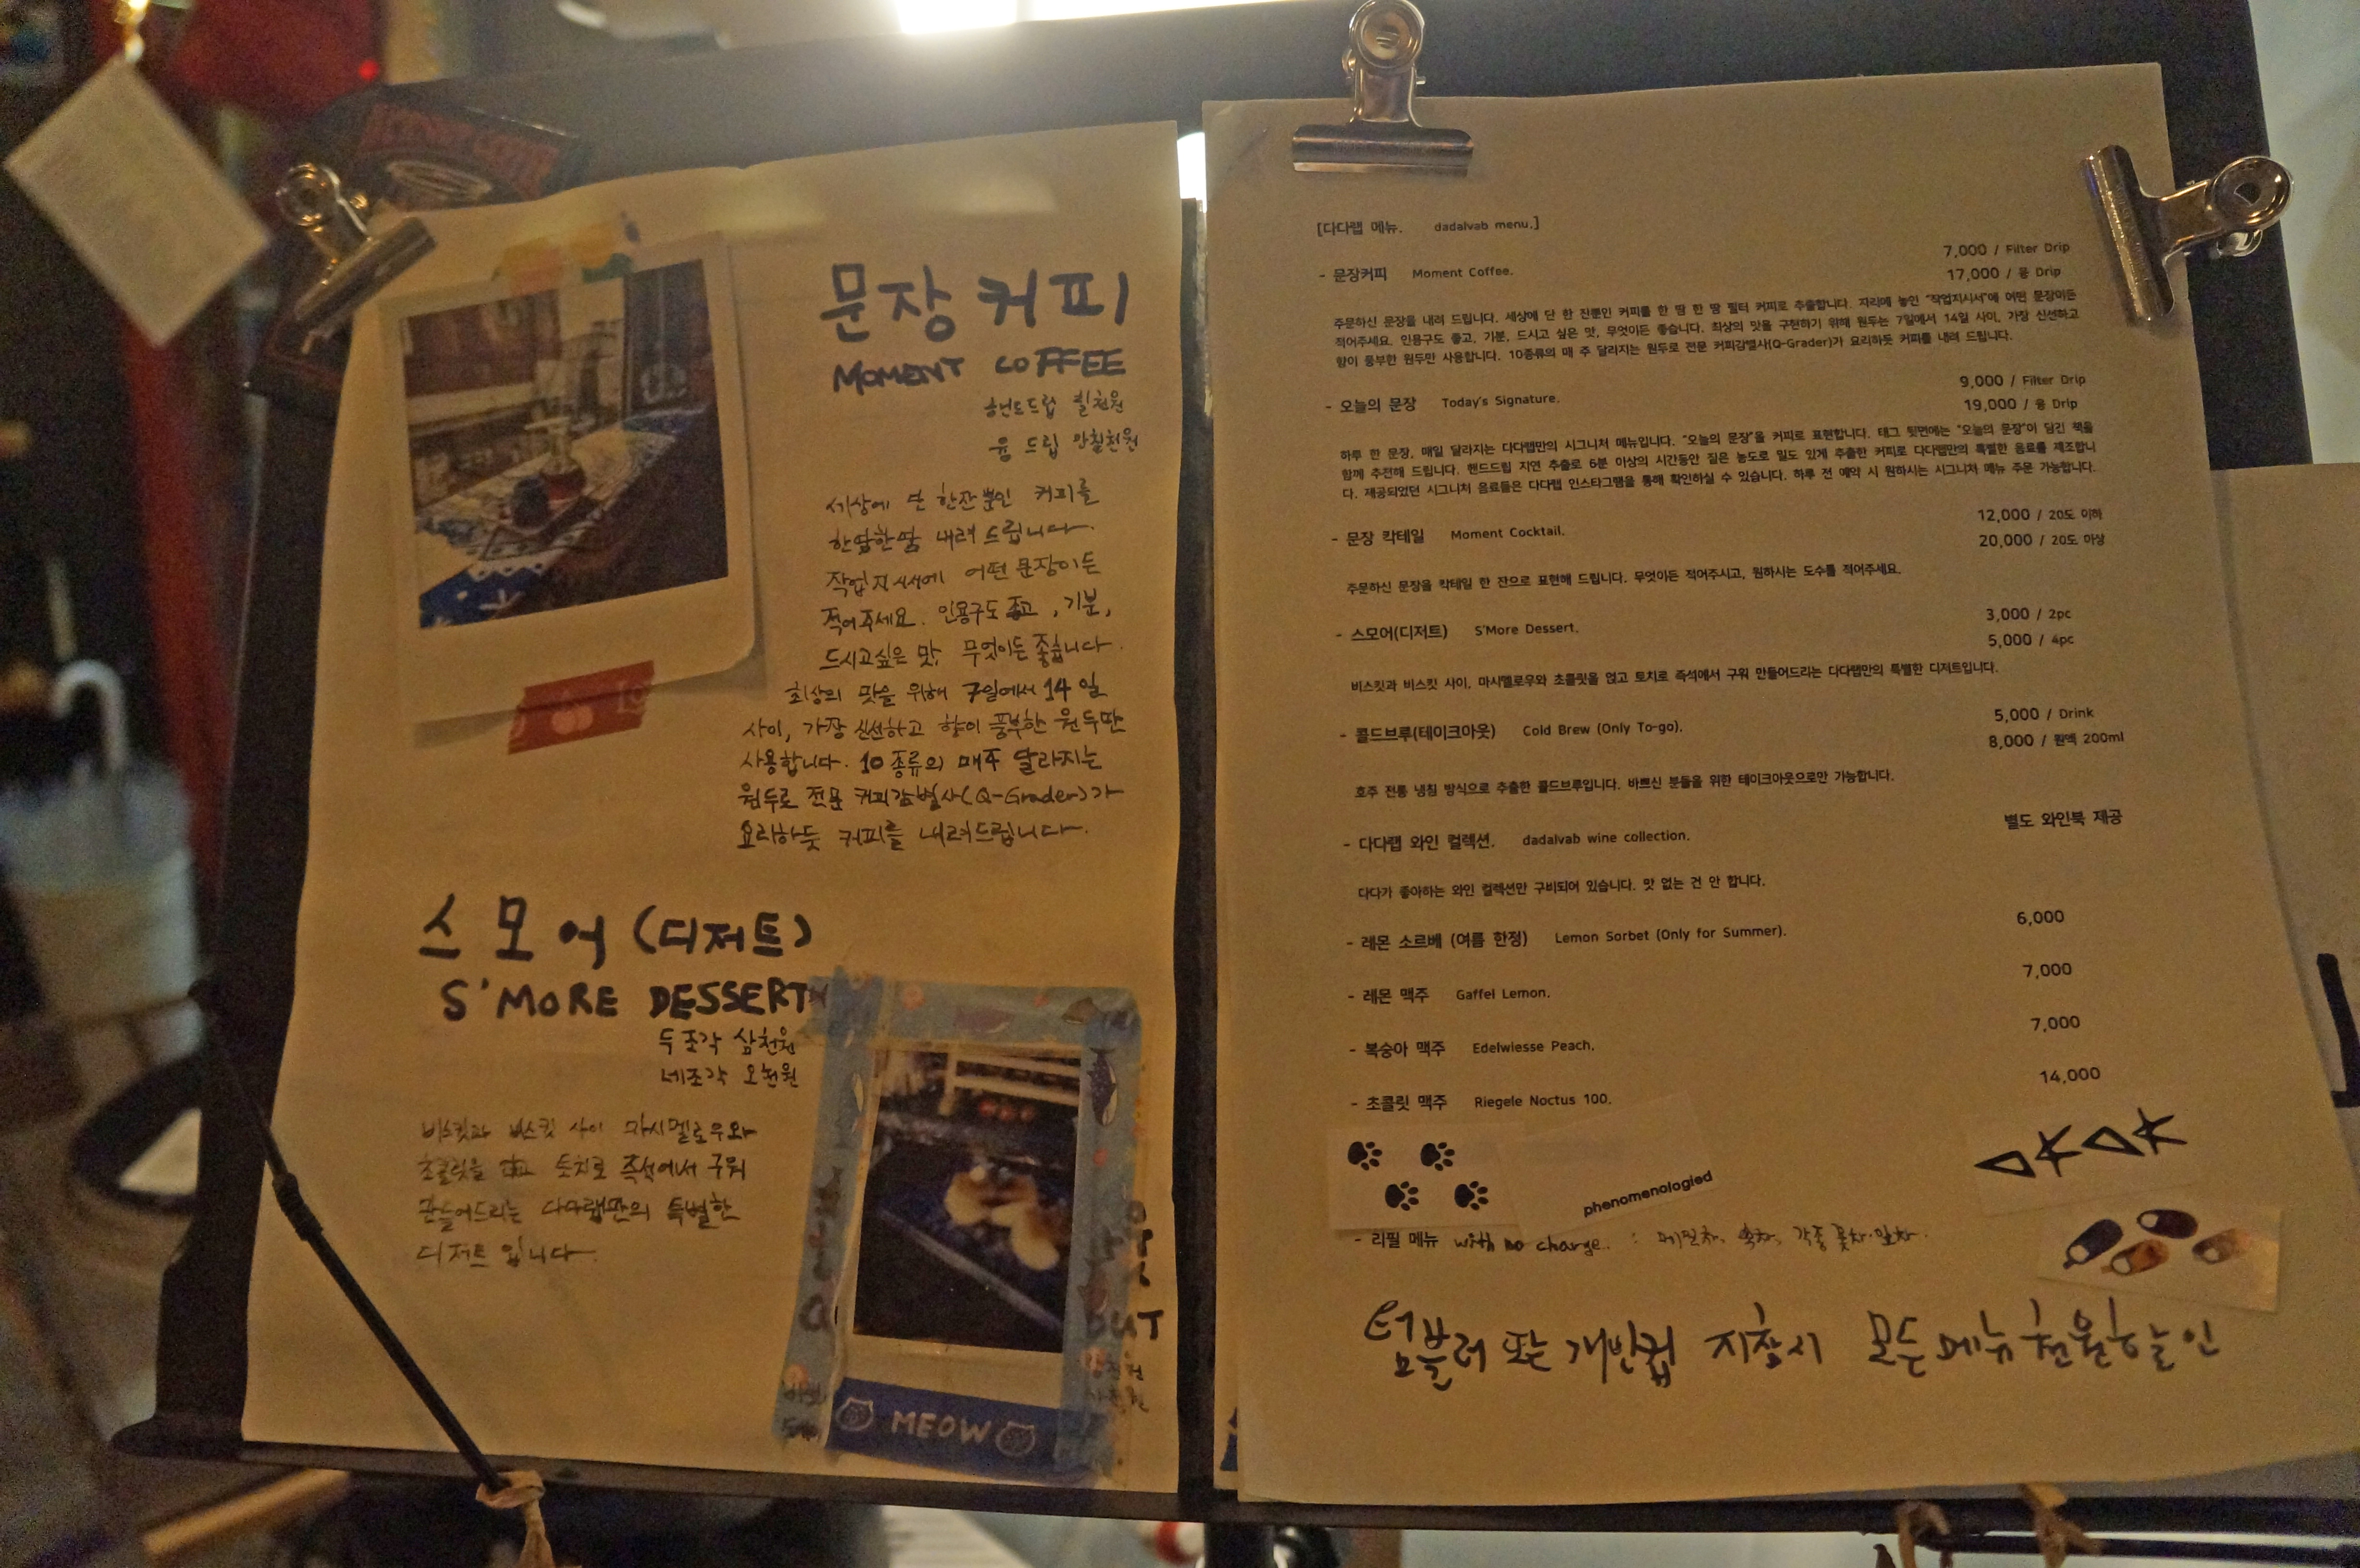 문장커피
MOMENT COFFEE
핸드드립 칠천원
융 드립 만칠천원
세상에 단 한잔뿐인 커피를
한땀한땀 내려 드립니다.
작업지시서에 어떤 문장이든
적어주세요. 인용구도 좋고, 기분,
드시고싶은 맛, 무엇이든 좋습니다.
최상의 맛을 위해 7일에서 14일
사이, 가장 신선하고 향이 풍부한 원두만
사용합니다. 10종류의 매주 달라지는
원두로 전문 커피감별사(Q-Grader)가
요리하듯 커피를 내려드립니다.
스모어(디저트)
S'MORE DESSERT
두조각 삼천원
네조각 오천원
비스킷과 비스킷 사이 마시멜로우와
초콜릿을 얹고 토치로 즉석에서 구워
만들어드리는 다다랩만의 특별한
디저트입니다.
MEOW
[다다랩 메뉴. dadalvab menu.]
- 문장커피 Moment Coffee. 7,000 / Filter Drip
17,000 / 융 Drip
주문하신 문장을 내려 드립니다. 세상에 단 한 잔뿐인 커피를 한 땀 한 땀 필터 커피로 추출합니다. 자리에 놓인 "작업지시서"에 어떤 문장이든
적어주세요. 인용구도 좋고, 기분, 드시고 싶은 맛, 무엇이든 좋습니다. 최상의 맛을 구현하기 위해 원두는 7일에서 14일 사이, 가장 신선하고
향이 풍부한 원두만 사용합니다. 10종류의 매 주 달라지는 원두로 전문 커피감별사(Q-Grader)가 요리하듯 커피를 내려 드립니다.
- 오늘의 문장 Today's Signature. 9,000 / Filter Drip
19,000 / 융 Drip
하루 한 문장, 매일 달라지는 다다랩만의 시그니처 메뉴입니다. "오늘의 문장"을 커피로 표현합니다. 태그 뒷면에는 "오늘의 문장"이 담긴 북을
함께 추천해 드립니다. 핸드드립 지연 추출로 6분 이상의 시간동안 짙은 농도로 밀도 있게 추출한 커피로 다다랩만의 특별한 음료를 제조합니
다. 제공되었던 시그니처 음료들은 다다랩 인스타그램을 통해 확인하실 수 있습니다. 하루 전 예약 시 원하시는 시그니처 메뉴 주문 가능합니다.
- 문장 칵테일 Moment Cocktail. 12,000 / 20도 이하
20,000 / 20도 이상
주문하신 문장을 칵테일 한 잔으로 표현해 드립니다. 무엇이든 적어주시고, 원하시는 도수를 적어주세요.
- 스모어(디저트) S'More Dessert. 3,000 / 2pc
5,000 / 4pc
비스킷과 비스킷 사이, 마시멜로우와 초콜릿을 얹고 토치로 즉석에서 구워 만들어드리는 다다랩만의 특별한 디저트입니다.
- 콜드브루(테이크아웃) Cold Brew (Only To-go). 5,000 / Drink
8,000 / 원액 200ml
호주 전통 냉침 방식으로 추출한 콜드브루입니다. 바쁘신 분들을 위한 테이크아웃으로만 가능합니다.
- 다다랩 와인 컬렉션. dadalvab wine collection. 별도 와인북 제공
다다가 좋아하는 와인 컬렉션만 구비되어 있습니다. 맛 없는 건 안 합니다.
- 레몬 소르베 (여름 한정) Lemon Sorbet (Only for Summer). 6,000
- 레몬 맥주 Gaffel Lemon. 7,000
- 복숭아 맥주 Edelwiesse Peach. 7,000
- 초콜릿 맥주 Riegele Noctus 100. 14,000
phenomenologied
- 리필 메뉴 with no charge. : 메밀차, 쑥차, 각종 꽃차·잎차.
텀블러 또는 개인컵 지참시 모든메뉴 천원할인